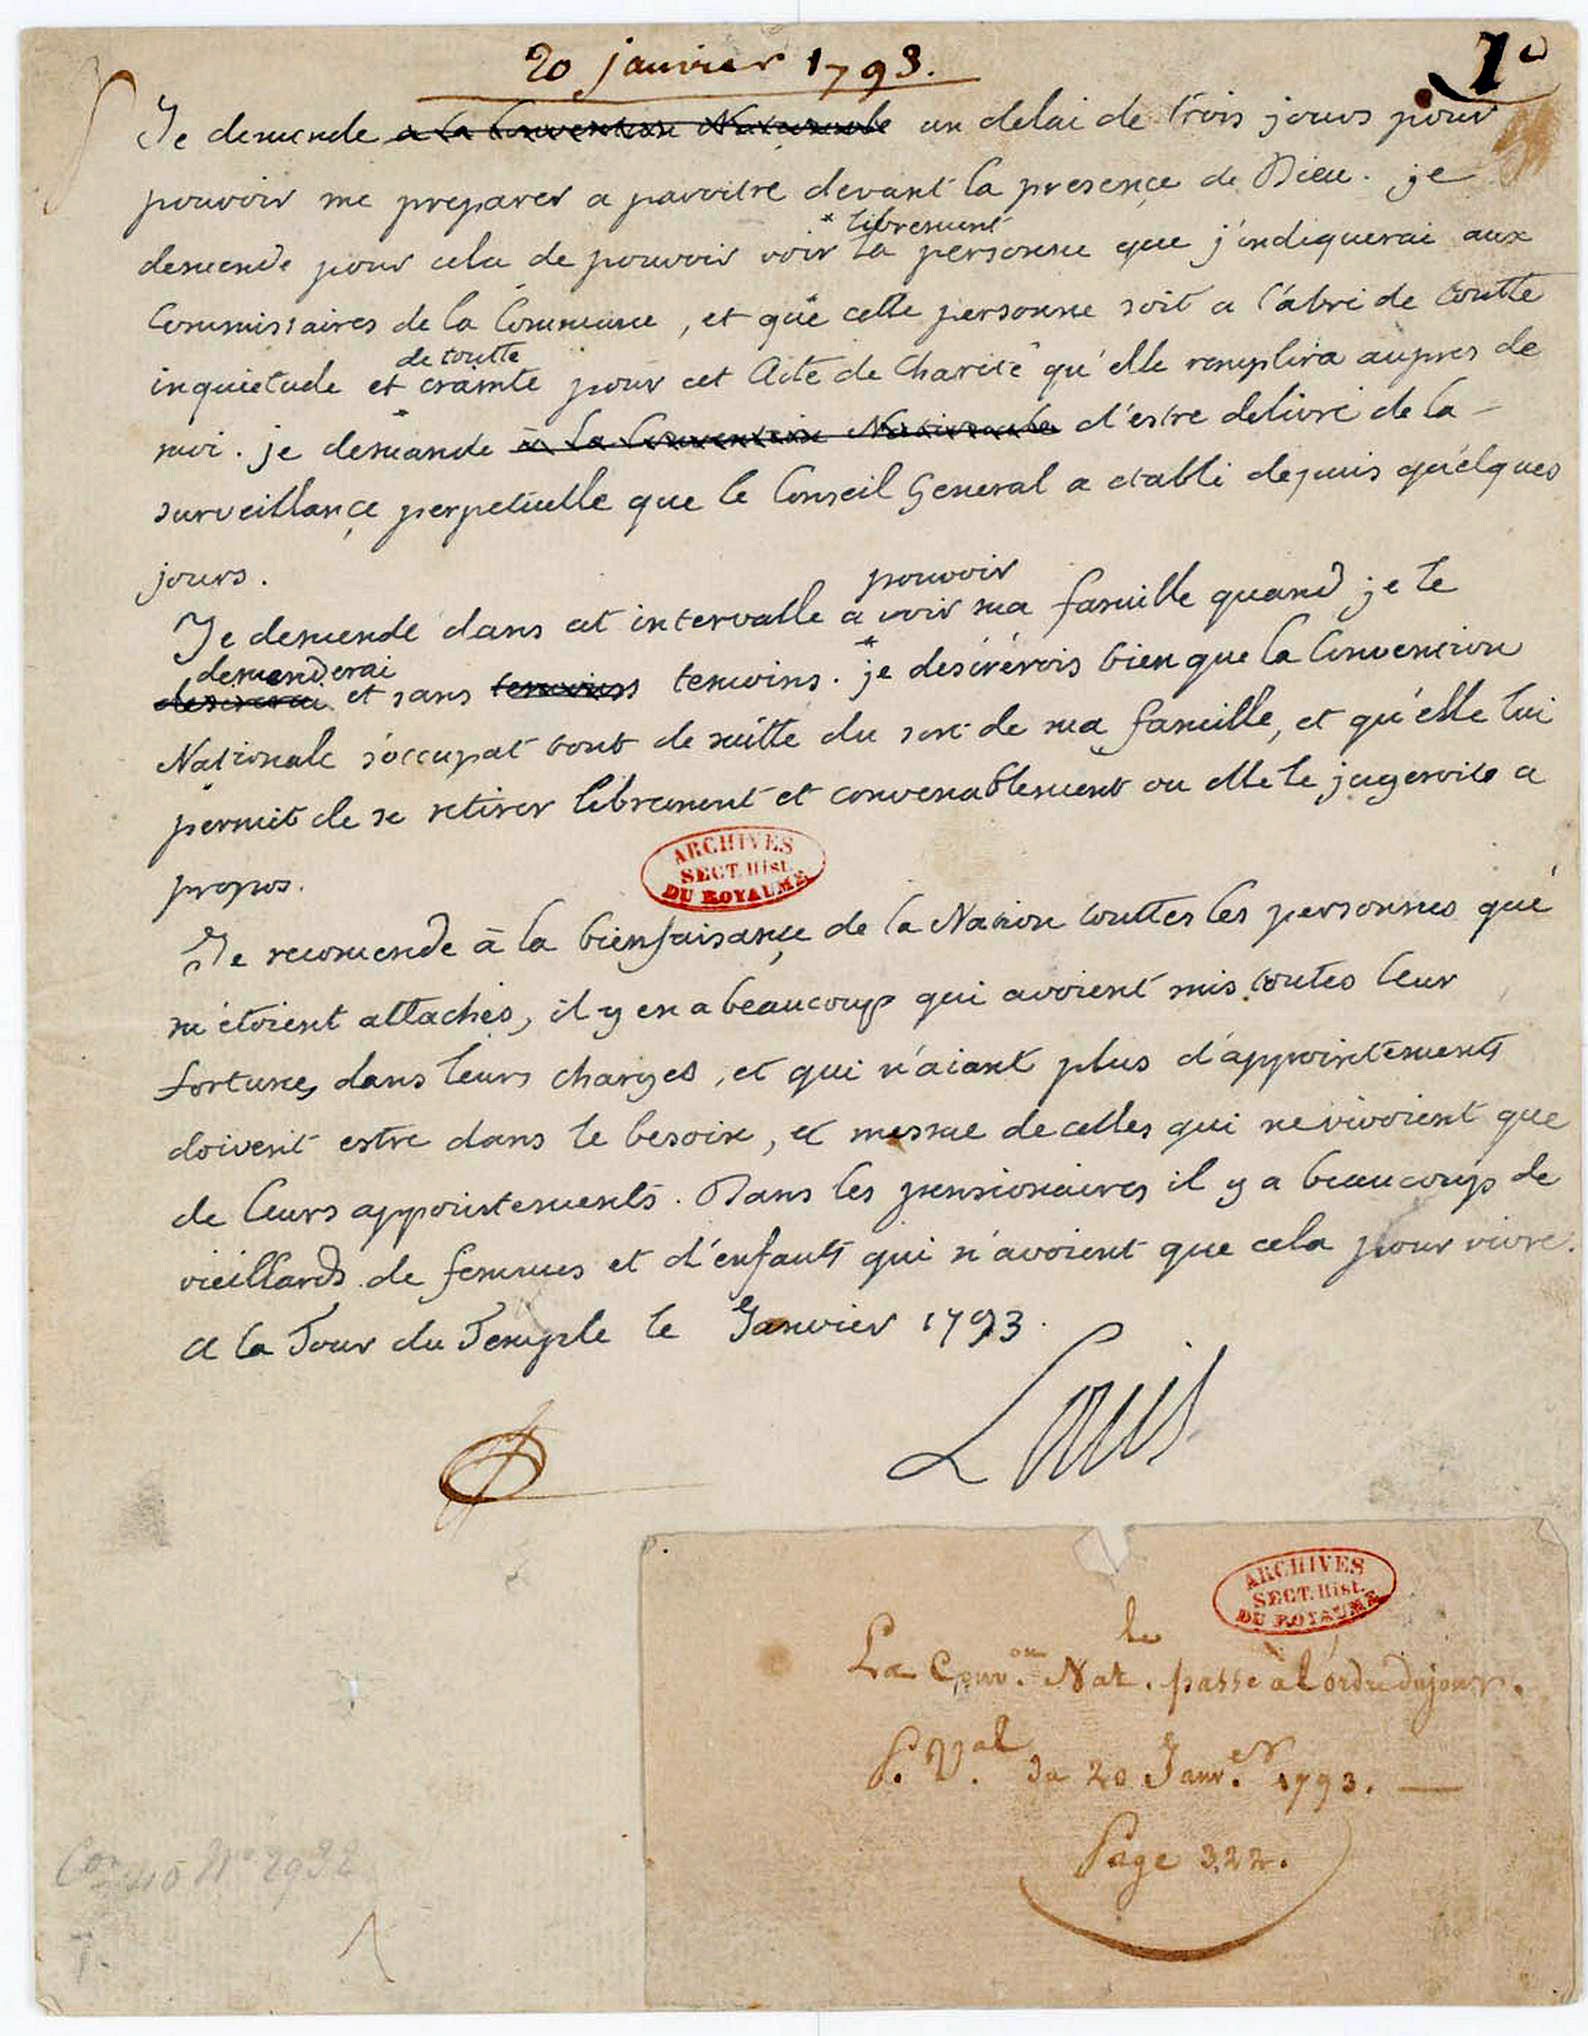 20 janvier 1793.
1°
Je demende a la Convention Nationale un delai de trois jours pour
pouvoir me preparer a paroitre devant la presençe de Dieu. je
* librement
demende pour cela de pouvoir voir la personne que j'indiquerai aux
Commissaires de la Commune, et que cette personne soit a l'abri de toutte
de toutte
inquietude et crainte pour cet Acte de Charité qu'elle remplira aupres de
moi. je demande à la Convention Nationale d'estre delivré de la
surveillançe perpetuelle que le Conseil General a etabli depuis quelques
jours.
pouvoir
Je demende dans cet intervalle a voir ma famille quand je le
demenderai
desirerai et sans temoins temoins. je desirérois bien que la Convencion
Nationale s'occupat tout de suitte du sort de ma famille, et qu'elle lui
permit de se retirer librement et convenablement ou elle le jugeroit a
propos.
ARCHIVES
SECT. Hist.
DU ROYAUME
Je recomende à la bienfaisançe de la Nation touttes les personnes qui
m'étoient attachés, il y en a beaucoup qui avoient mis toutes leur
fortunes dans leurs charges, et qui n'aiant plus d'appointements
doivent estre dans le besoin, et mesme de celles qui ne vivoient que
de leurs appointements. Dans les pensionaires il y a beaucoup de
vieillards de femmes et d'enfants qui n'avoient que cela pour vivre.
A la Tour du Temple le Janvier 1793.
Louis
ARCHIVES
SECT. Hist.
DU ROYAUME
La Conv.on Nat.le passe à l'ordre du jour.
P. V.al du 20 Janv.er 1793. —
Page 322.
N° 2932
1